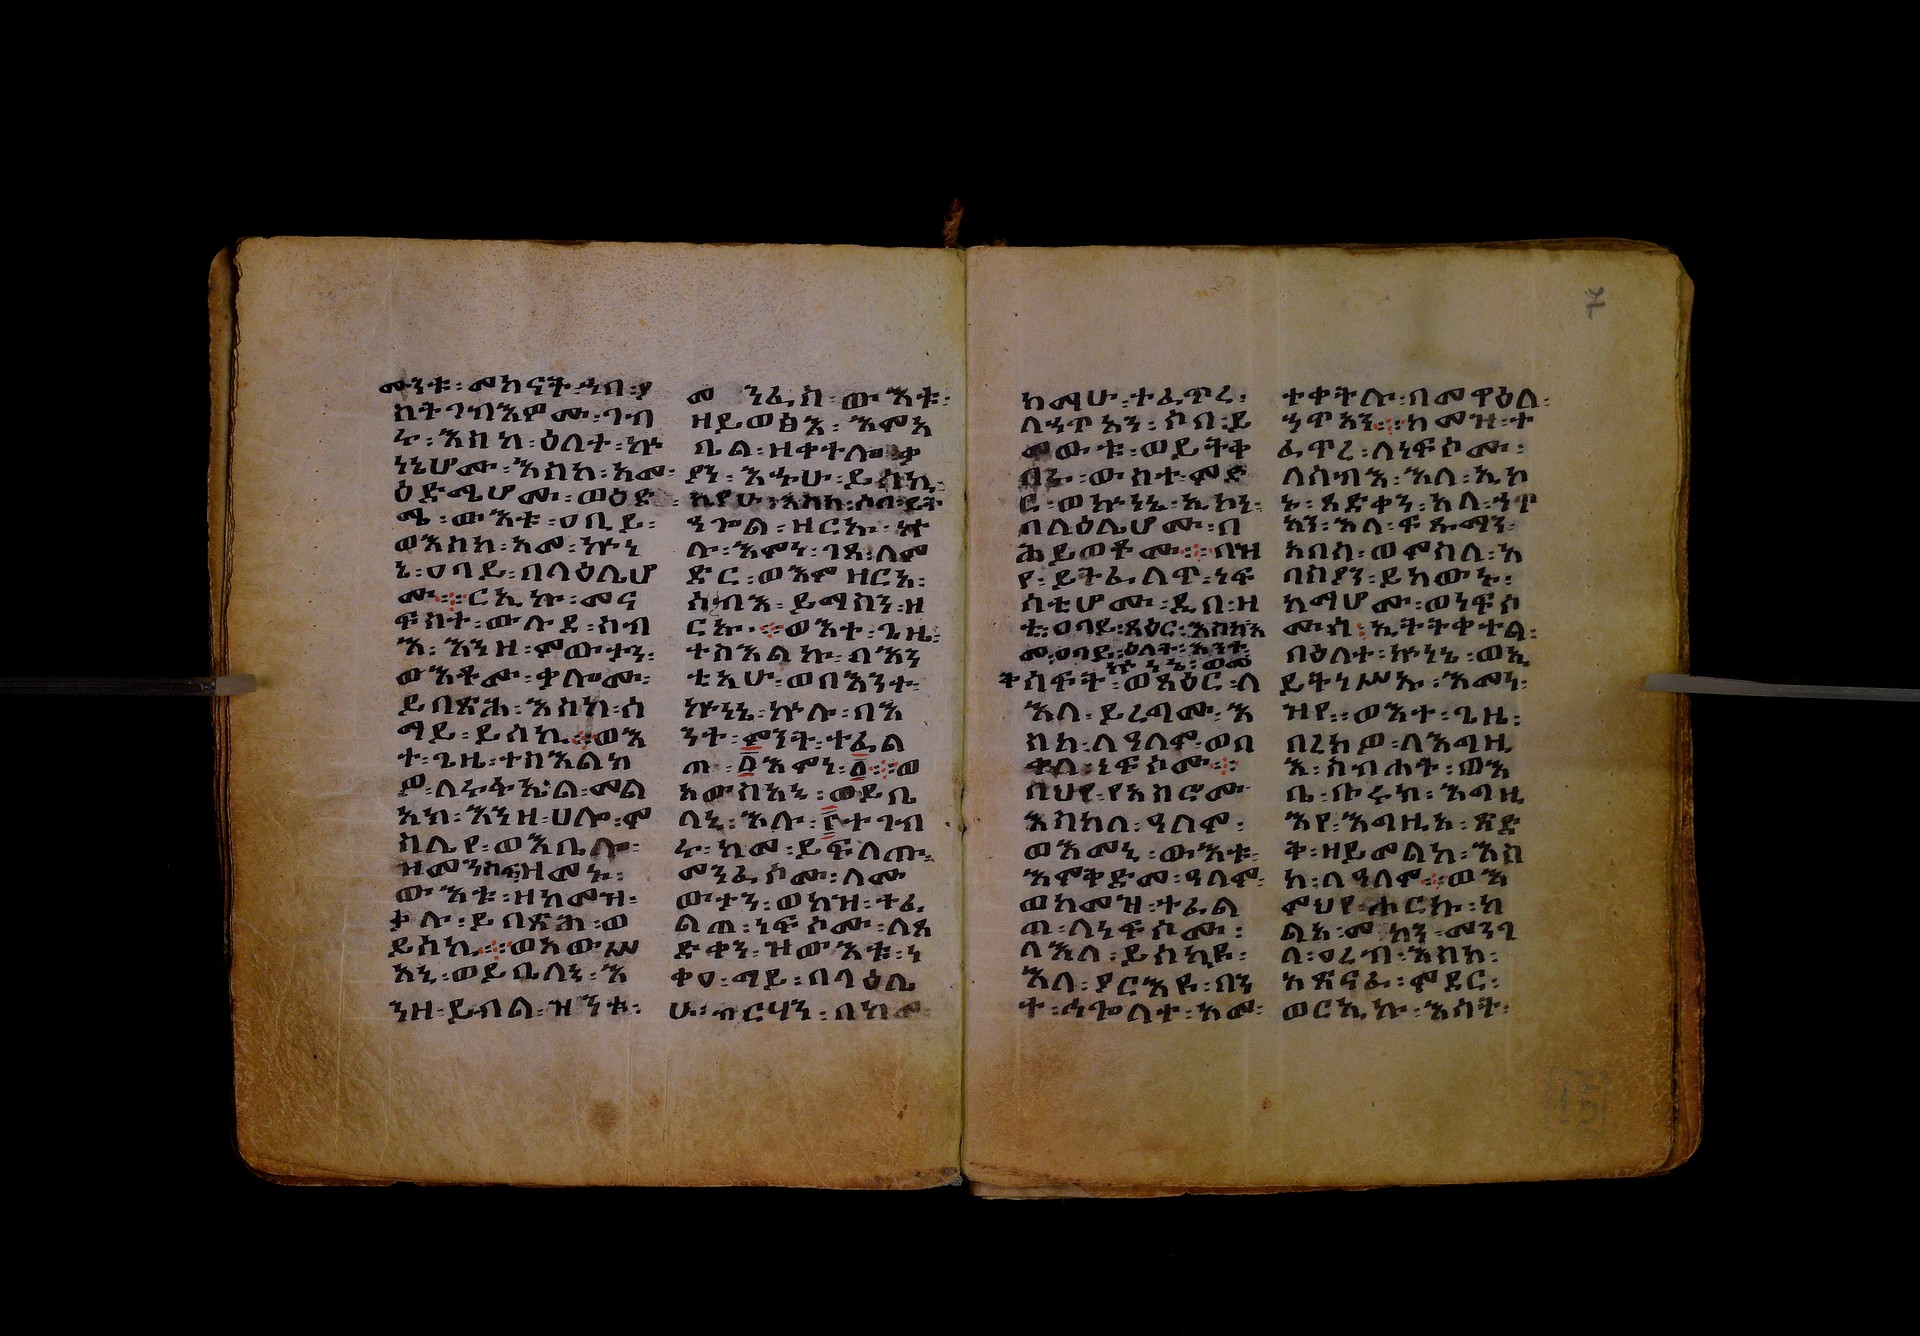 ሙንቱ፡መካናት፡ኀበ፡ያ
ስተጋብእዎሙ፡ገብ
ሩ፡እስከ፡ዕለተ፡ኵ
ነኔሆሙ፡እስከ፡አመ፡
ዕድሜሆሙ፡ወዕድ
ሜ፡ውእቱ፡ዐቢይ፡
ወእስከ፡አመ፡ኵነ
ኔ፡ዐባይ፡በላዕሌሆ
ሙ፨ርኢኩ፡መና
ፍስተ፡ውሉደ፡ሰብ
እ፡እንዘ፡ምውታን፡
ውእቶሙ፡ቃሎሙ፡
ይበጽሕ፡እስከ፡ሰ
ማይ፡ይሰኪ፨ወእ
ተ፡ጊዜ፡ተስእልክ
ዎ፡ለሩፋኤል፡መል
አክ፡እንዘ፡ሀሎ፡ም
ስሌየ፡ወእቤሎ፡
ዝመንፈስ፡ዘመኑ፡
ውእቱ፡ዘከመዝ፡
ቃሉ፡ይበጽሕ፡ወ
ይሰኪ፨ወአውሥ
አኒ፡ወይቤለኒ፡እ
ንዘ፡ይብል፡ዝንቱ፡
መንፈስ፡ውእቱ፡
ዘይወፅእ፡እምአ
ቤል፡ዘቀተሎ፡ቃ
የን፡እኁሁ፡ይሰኪ፡
ኪያሁ፡እስከ፡ሶበ፡ይት
ኀጐል፡ዘርኡ፡ኵ
ሉ፡እምነ፡ገጸ፡ለም
ድር፡ወእምዘርአ፡
ሰብእ፡ይማስን፡ዘ
ርኡ፨ወእተ፡ጊዜ፡
ተስእልኩ፡በእን
ቲአሁ፡ወበእንተ፡
ኵነኔ፡ኵሉ፡በእ
ንት፡ምንት፡ተፈል
ጠ፡፩እምነ፡፩፨ወ
አውስአኒ፡ወይቤ
ለኒ፡እሉ፡፫ተገብ
ሩ፡ከመ፡ይፍለጡ፡
መንፈሶሙ፡ለሙ
ውታን፡ወከዝ፡ተፈ
ልጠ፡ነፍሶሙ፡ለጻ
ድቃን፡ዝውእቱ፡ነ
ቅዐ፡ማይ፡በላዕሌ
ሁ፡ብርሃን፡በከመ፡
ከማሁ፡ተፈጥረ፡
ለኃጥአን፡ሶበ፡ይ
መውቱ፡ወይትቀ
በሩ፡ውስተ፡ምድ
ር፡ወኵነኔ፡ኢኮነ፡
በላዕሌሆሙ፡በ
ሕይወቶሙ፨በዝ
የ፡ይትፈለጥ፡ነፍ
ሳቲሆሙ፡ዲበ፡ዛ
ቲ፡ዐባይ፡ጻዕር፡እስከአ
መ፡ዐባይ፡ዕለት፡እንተ፡
ኵነኔ፡ወመ
ቅሰፍት፡ወጻዕር፡ለ
እለ፡ይረግሙ፡እ
ስከ፡ለዓለም፡ወበ
ቀለ፡ነፍሶሙ፨
በህየ፡የአስሮሙ፡
እስከለ፡ዓለም፡
ወእመኒ፡ውእቱ፡
እምቅድመ፡ዓለም፡
ወከመዝ፡ተፈል
ጠ፡ለነፍሶሙ፡
ለእለ፡ይሰክዩ፡
እለ፡ያርእዩ፡በን
ተ፡ሐጐለተ፡አመ፡
ተቀትሉ፡በመዋዕለ፡
ኃጥአን፨ከመዝ፡ተ
ፈጥረ፡ለነፍሶሙ፡
ለሰብእ፡እለ፡ኢኮ
ኑ፡ጻድቃን፡አለ፡ኃጥ
አን፡እለ፡ፍጹማን፡
አበሳ፡ወምስለ፡አ
ባስያን፡ይከውኑ፡
ከማሆሙ፡ወነፍሶ
ሙሰ፡ኢትትቀተል፡
በዕለተ፡ኵነኔ፡ወኢ
ይትነሥኡ፡እምነ፡
ዝየ፡ወእተ፡ጊዜ፡
በረክዎ፡ለእግዚ
እ፡ስብሐት፡ወእ
ቤ፡ቡሩክ፡እግዚ
እየ፡እግዚአ፡ጽድ
ቅ፡ዘይመልክ፡እስ
ከ፡ለዓለም፨ወእ
ምህየ፡ሖርኩ፡ካ
ልአ፡መካን፡መንገ
ለ፡ዐረብ፡እስከ፡
አጽናፈ፡ምድር፡
ወርኢኩ፡እሳት፡
7